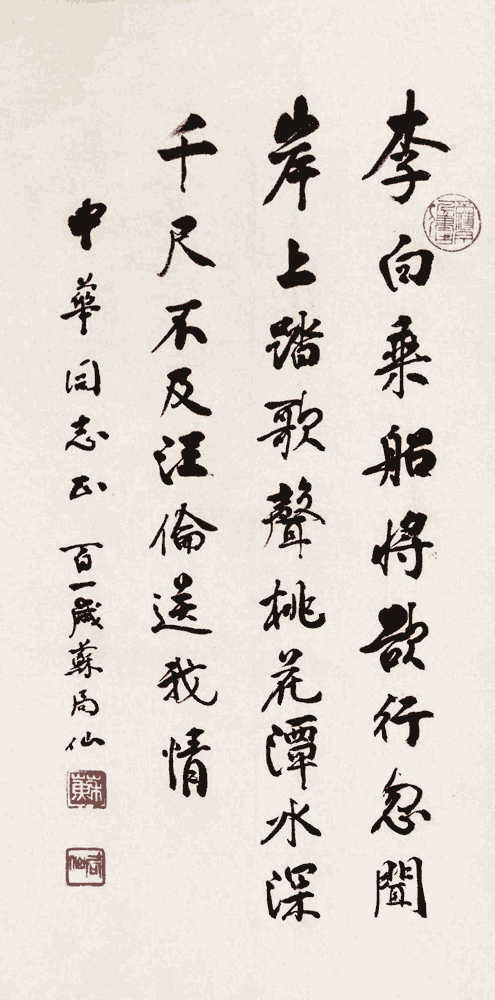 李白乗船將欲行忽聞
岸上踏歌聲桃花潭水深
千尺不及汪倫送我情
中華同志正 百一歲蘇局仙
蘇
局仙